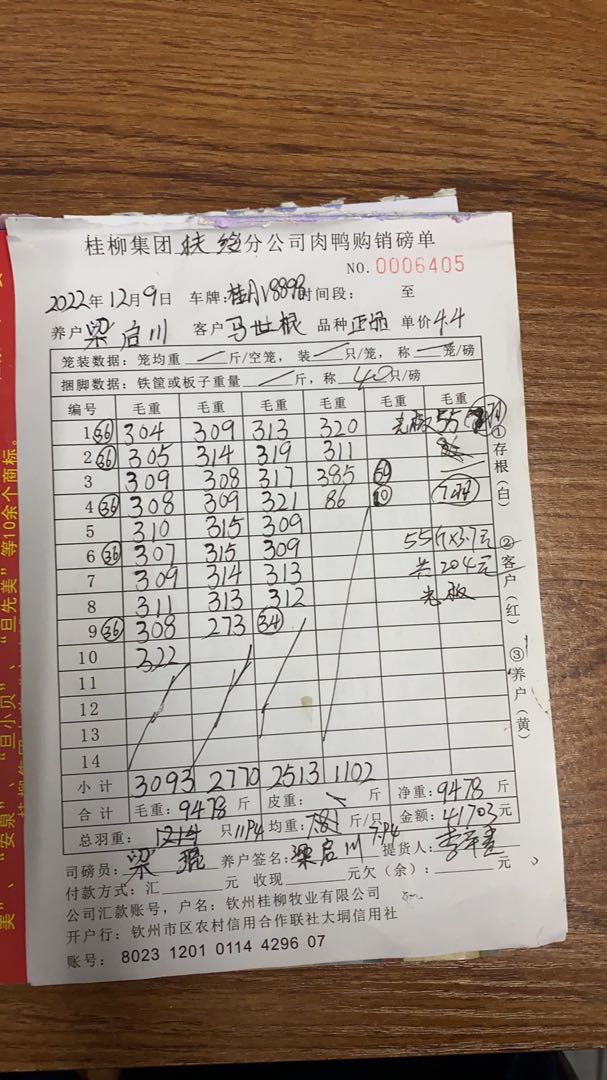 桂柳集团扶绥分公司肉鸭购销磅单
NO.0006405
2022年12月9日 车牌:桂AV8898 时间段: 至
养户 梁启川 客户 马世根 品种 正品 单价 4.4
笼装数据:笼均重 斤/空笼,装 只/笼,称 笼/磅
捆脚数据:铁筐或板子重量 斤,称 40 只/磅
编号 毛重 毛重 毛重 毛重 毛重 毛重
1 36 304 309 313 320 光板 55斤
2 36 305 314 319 311
3 309 308 317 385
4 36 308 309 321 86 10 7羽
5 310 315 309
6 36 307 315 309 55斤×3.7元
7 309 314 313 共204元
8 311 313 312 光板
9 36 308 273 34
10 322
11
12
13
14
小计 3093 2770 2513 1102
合计 毛重:9478斤 皮重: 斤 净重:9478斤
总羽重:1214只 均重:7.81斤/只 金额:41703元
司磅员: 梁 养户签名:梁启川 提货人:李
付款方式:汇 元 收现 元欠(余): 元
公司汇款账号,户名:钦州桂柳牧业有限公司
开户行:钦州市区农村信用合作联社大垌信用社
账号:8023 1201 0114 4296 07
①存根(白)
②客户(红)
③养户(黄)
美”、“安泉”、“旦小贝”、“旦先美”等10余个商标。